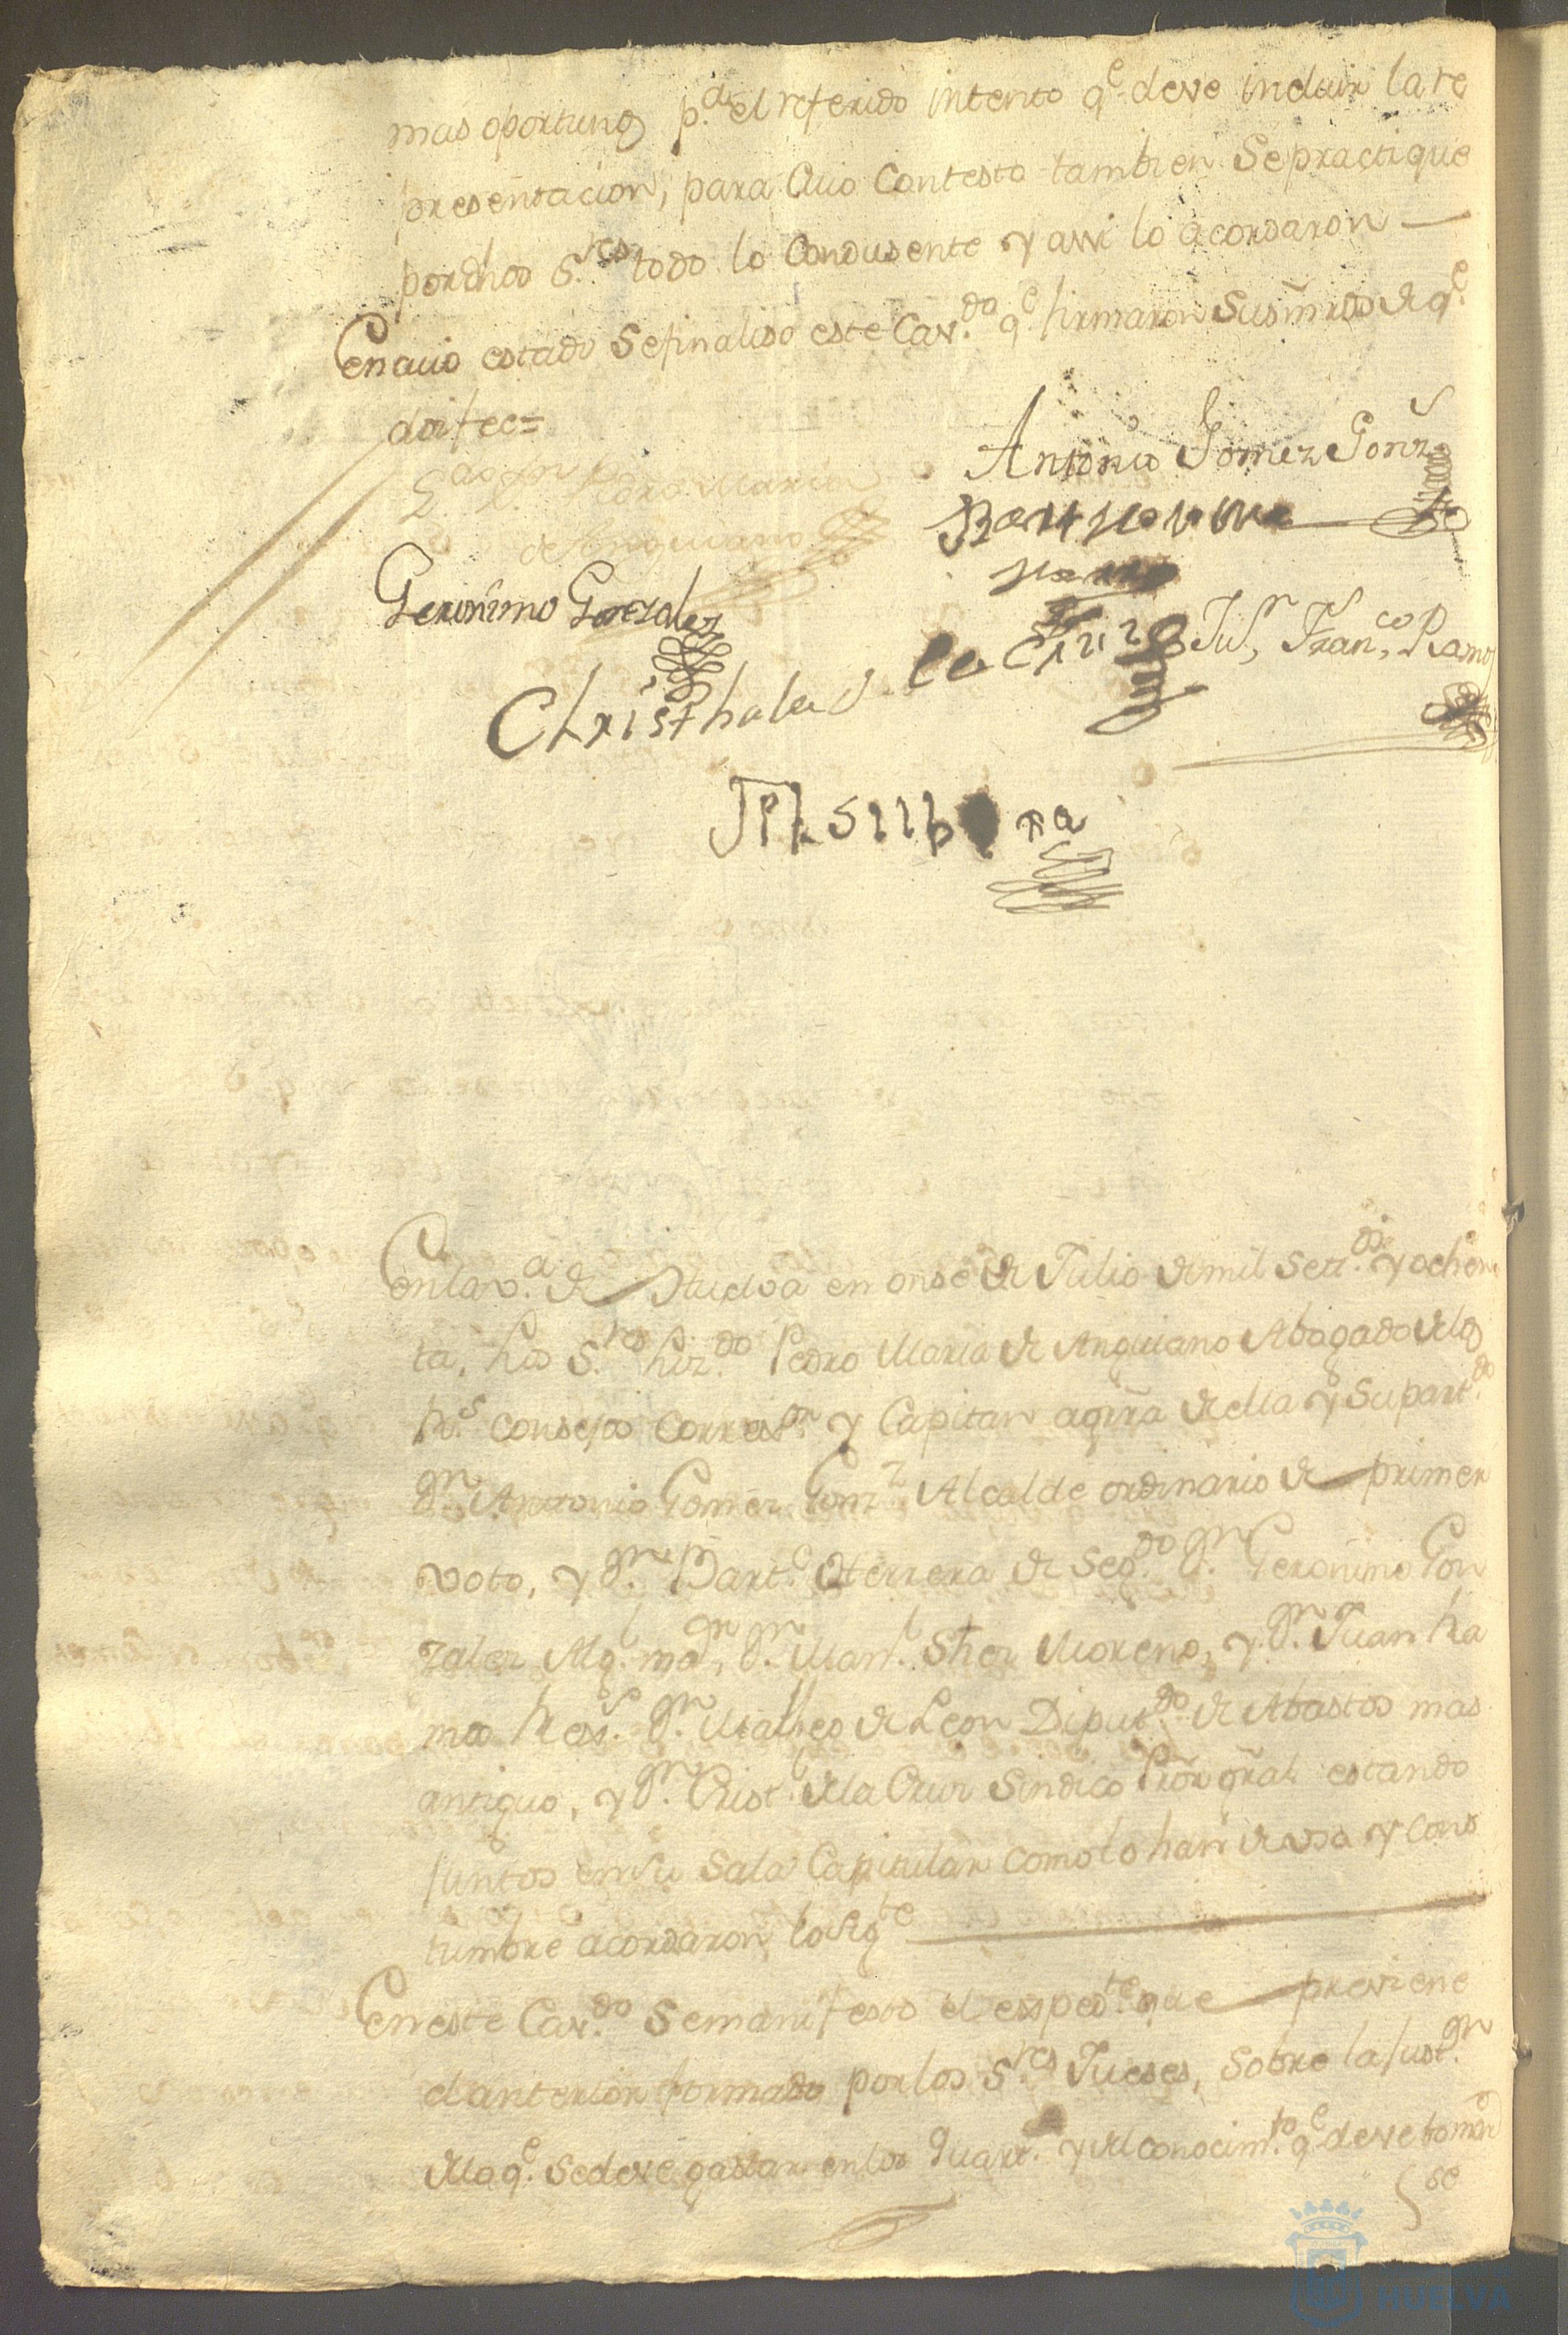 mas oportuno p.ª el referido intento q.e deve incluir la re
presentacion, para cuio contesto tambien se practique
por dhos S.res todo lo condusente y assi lo acordaron —
En cuio estado se finaliso este Cav.do q.e firmaron sus mrds de q.e
doi fee=
Antonio Gomez Gonz.
L.do Dn Pedro Maria
de Anguiano
Bartholome
Geronimo Gonzalez
Ju.n Fran.co Ramos
Christhobal de la Cruz
En la v.ª de Huelva en onse de Julio de mil set.os y ochen
ta, los S.res Liz.do Pedro Maria de Anguiano Abogado de los
R.s Consejos Corres.or y Capitan a grra de ella y su part.do
Dn Antonio Gomez Gonz.z Alcalde ordinario de primer
voto, y Dn Bart.e Herrera de seg.do Dn Geronimo Gon
zalez Alg.l m.or, Dn Man.l Shez Moreno, y Dn Juan Ra
mos Dn Matheo de Leon Diput.do de Abastos mas
antiguo, y Dn Crist.l de la Cruz Sindico Pror gral estando
juntos en su Sala Capitular como lo han de uso y cons
tumbre acordaron lo sig.te
En este Cav.do se manifesto el esped.te que previene
el anterior formado por los S.res Jueses, sobre la just.on
de lo q.e se deve gastar en los quart.s y del conocim.to q.e deve tomar
se
HUELVA